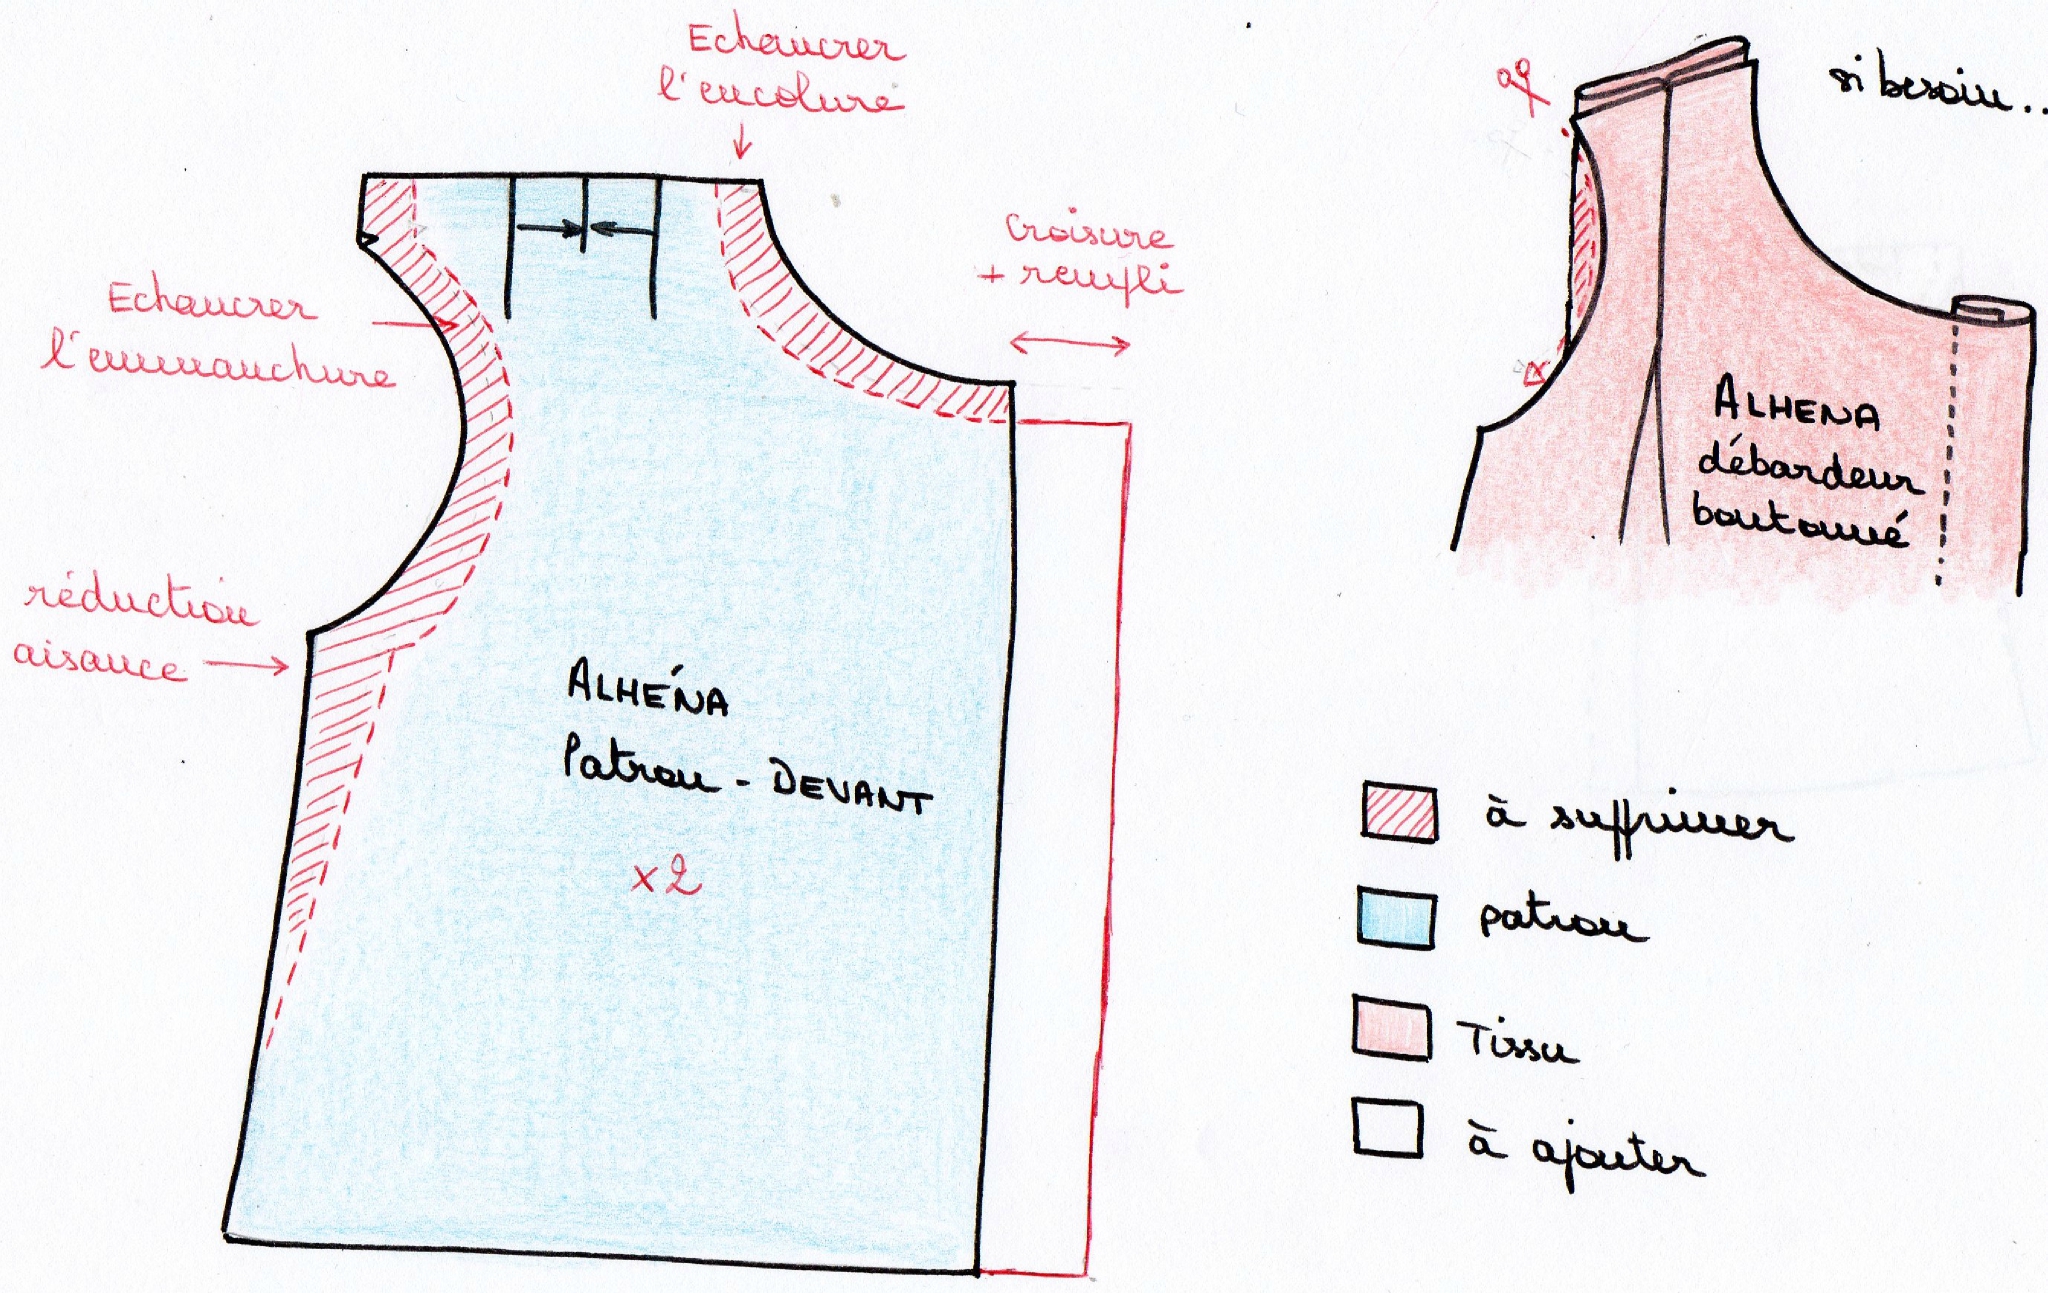 Echancrer
l'encolure
si besoin..
croisure
+ rempli
Echancrer
l'emmanchure
réduction
aisance
ALHÉNA
Patron - DEVANT
x2
ALHENA
débardeur
boutonné
à supprimer
patron
Tissu
à ajouter